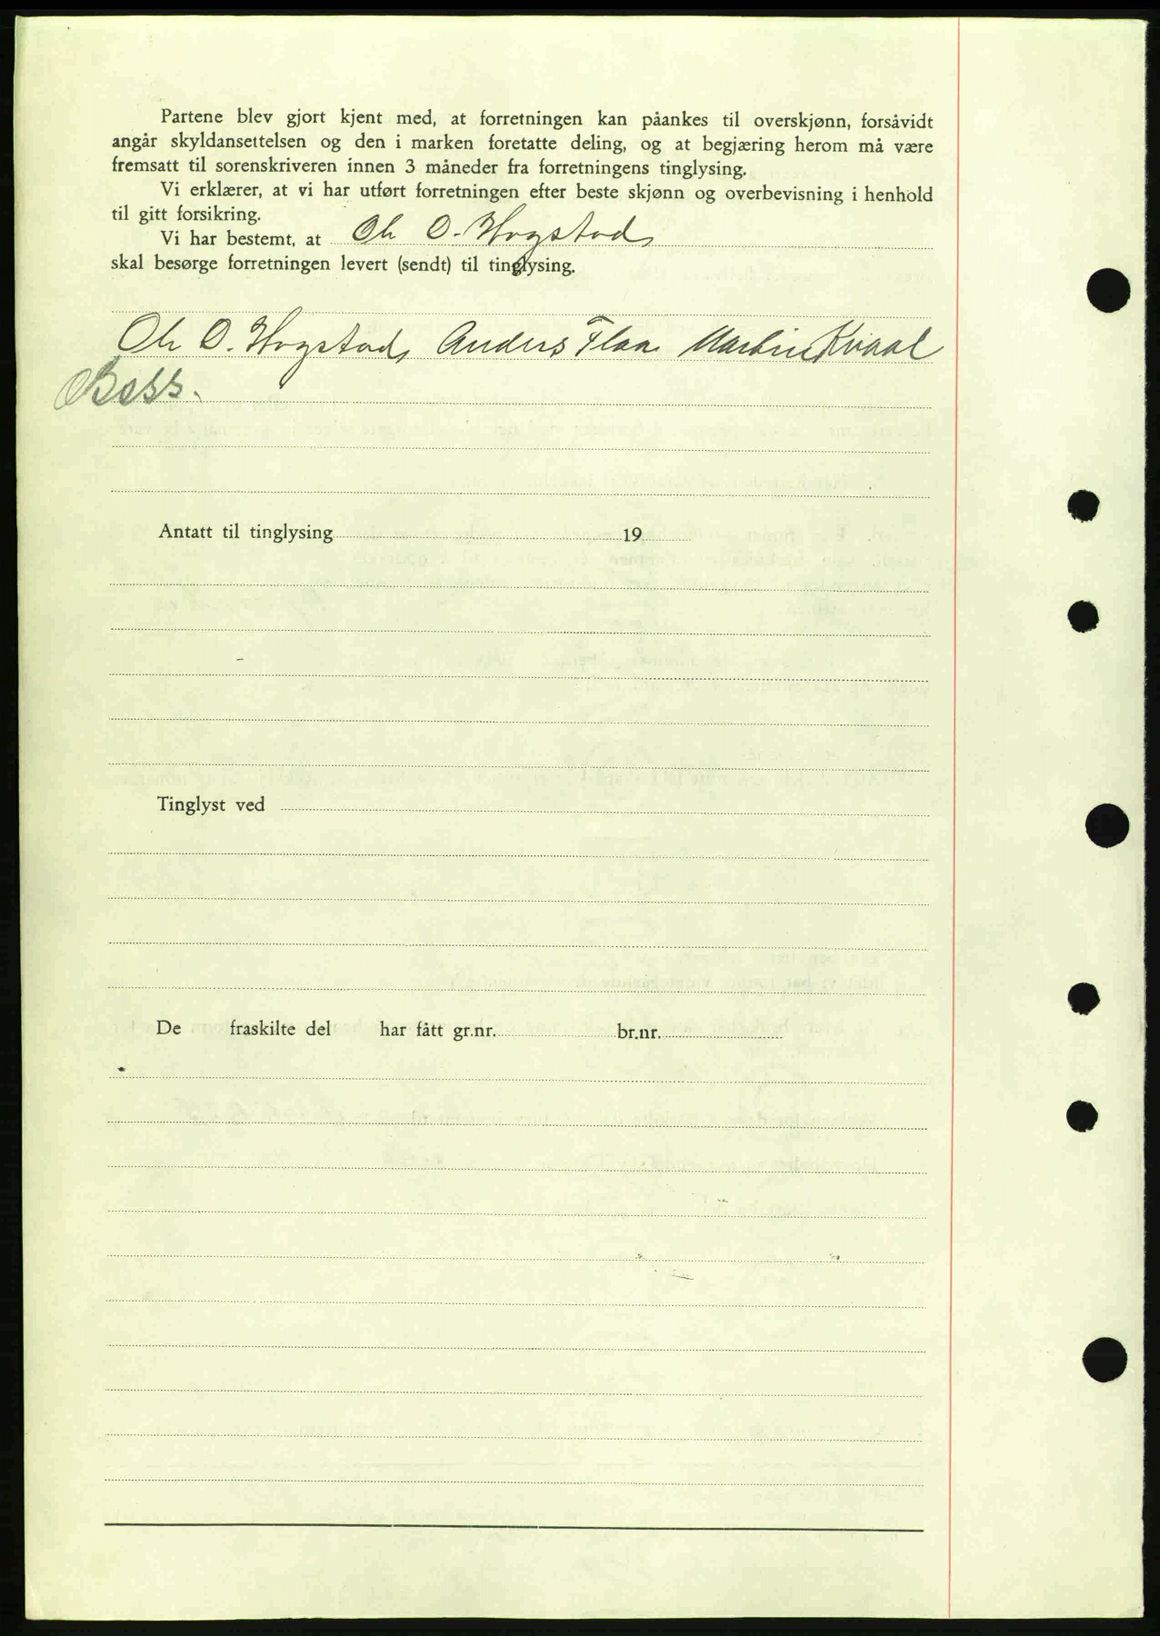 Partene blev gjort kjent med, at forretningen kan påankes til overskjønn, forsåvidt
angår skyldansettelsen og den i marken foretatte deling, og at begjæring herom må være
fremsatt til sorenskriveren innen 3 måneder fra forretningens tinglysing.
Vi erklærer, at vi har utført forretningen efter beste skjønn og overbevisning i henhold
til gitt forsikring.
Vi har bestemt, at Ole O. Hogstad
skal besørge forretningen levert (sendt) til tinglysing.
Ole O. Hogstad Anders Flaa Martin Kvaal
Antatt til tinglysing 19
Tinglyst ved
De fraskilte del har fått gr.nr. br.nr.